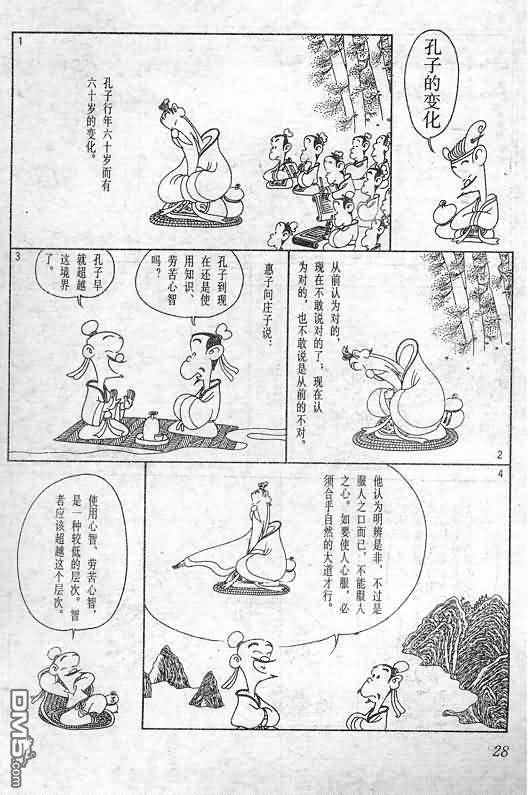 孔子的变化
1
孔子行年六十岁而有
六十岁的变化。
从前认为对的，
现在不敢说对的了；现在认
为对的，也不敢说是从前的不对。
2
3
惠子问庄子说：
孔子到现
在还是使
用知识、
劳苦心智
吗？
孔子早
就超越
这境界
了。
4
他认为明辨是非，不过是
服人之口而已，不能服人
之心。如要使人心服，必
须合乎自然的大道才行。
使用心智、劳苦心智，
是一种较低的层次。智
者应该超越这个层次。
28
DM5.com